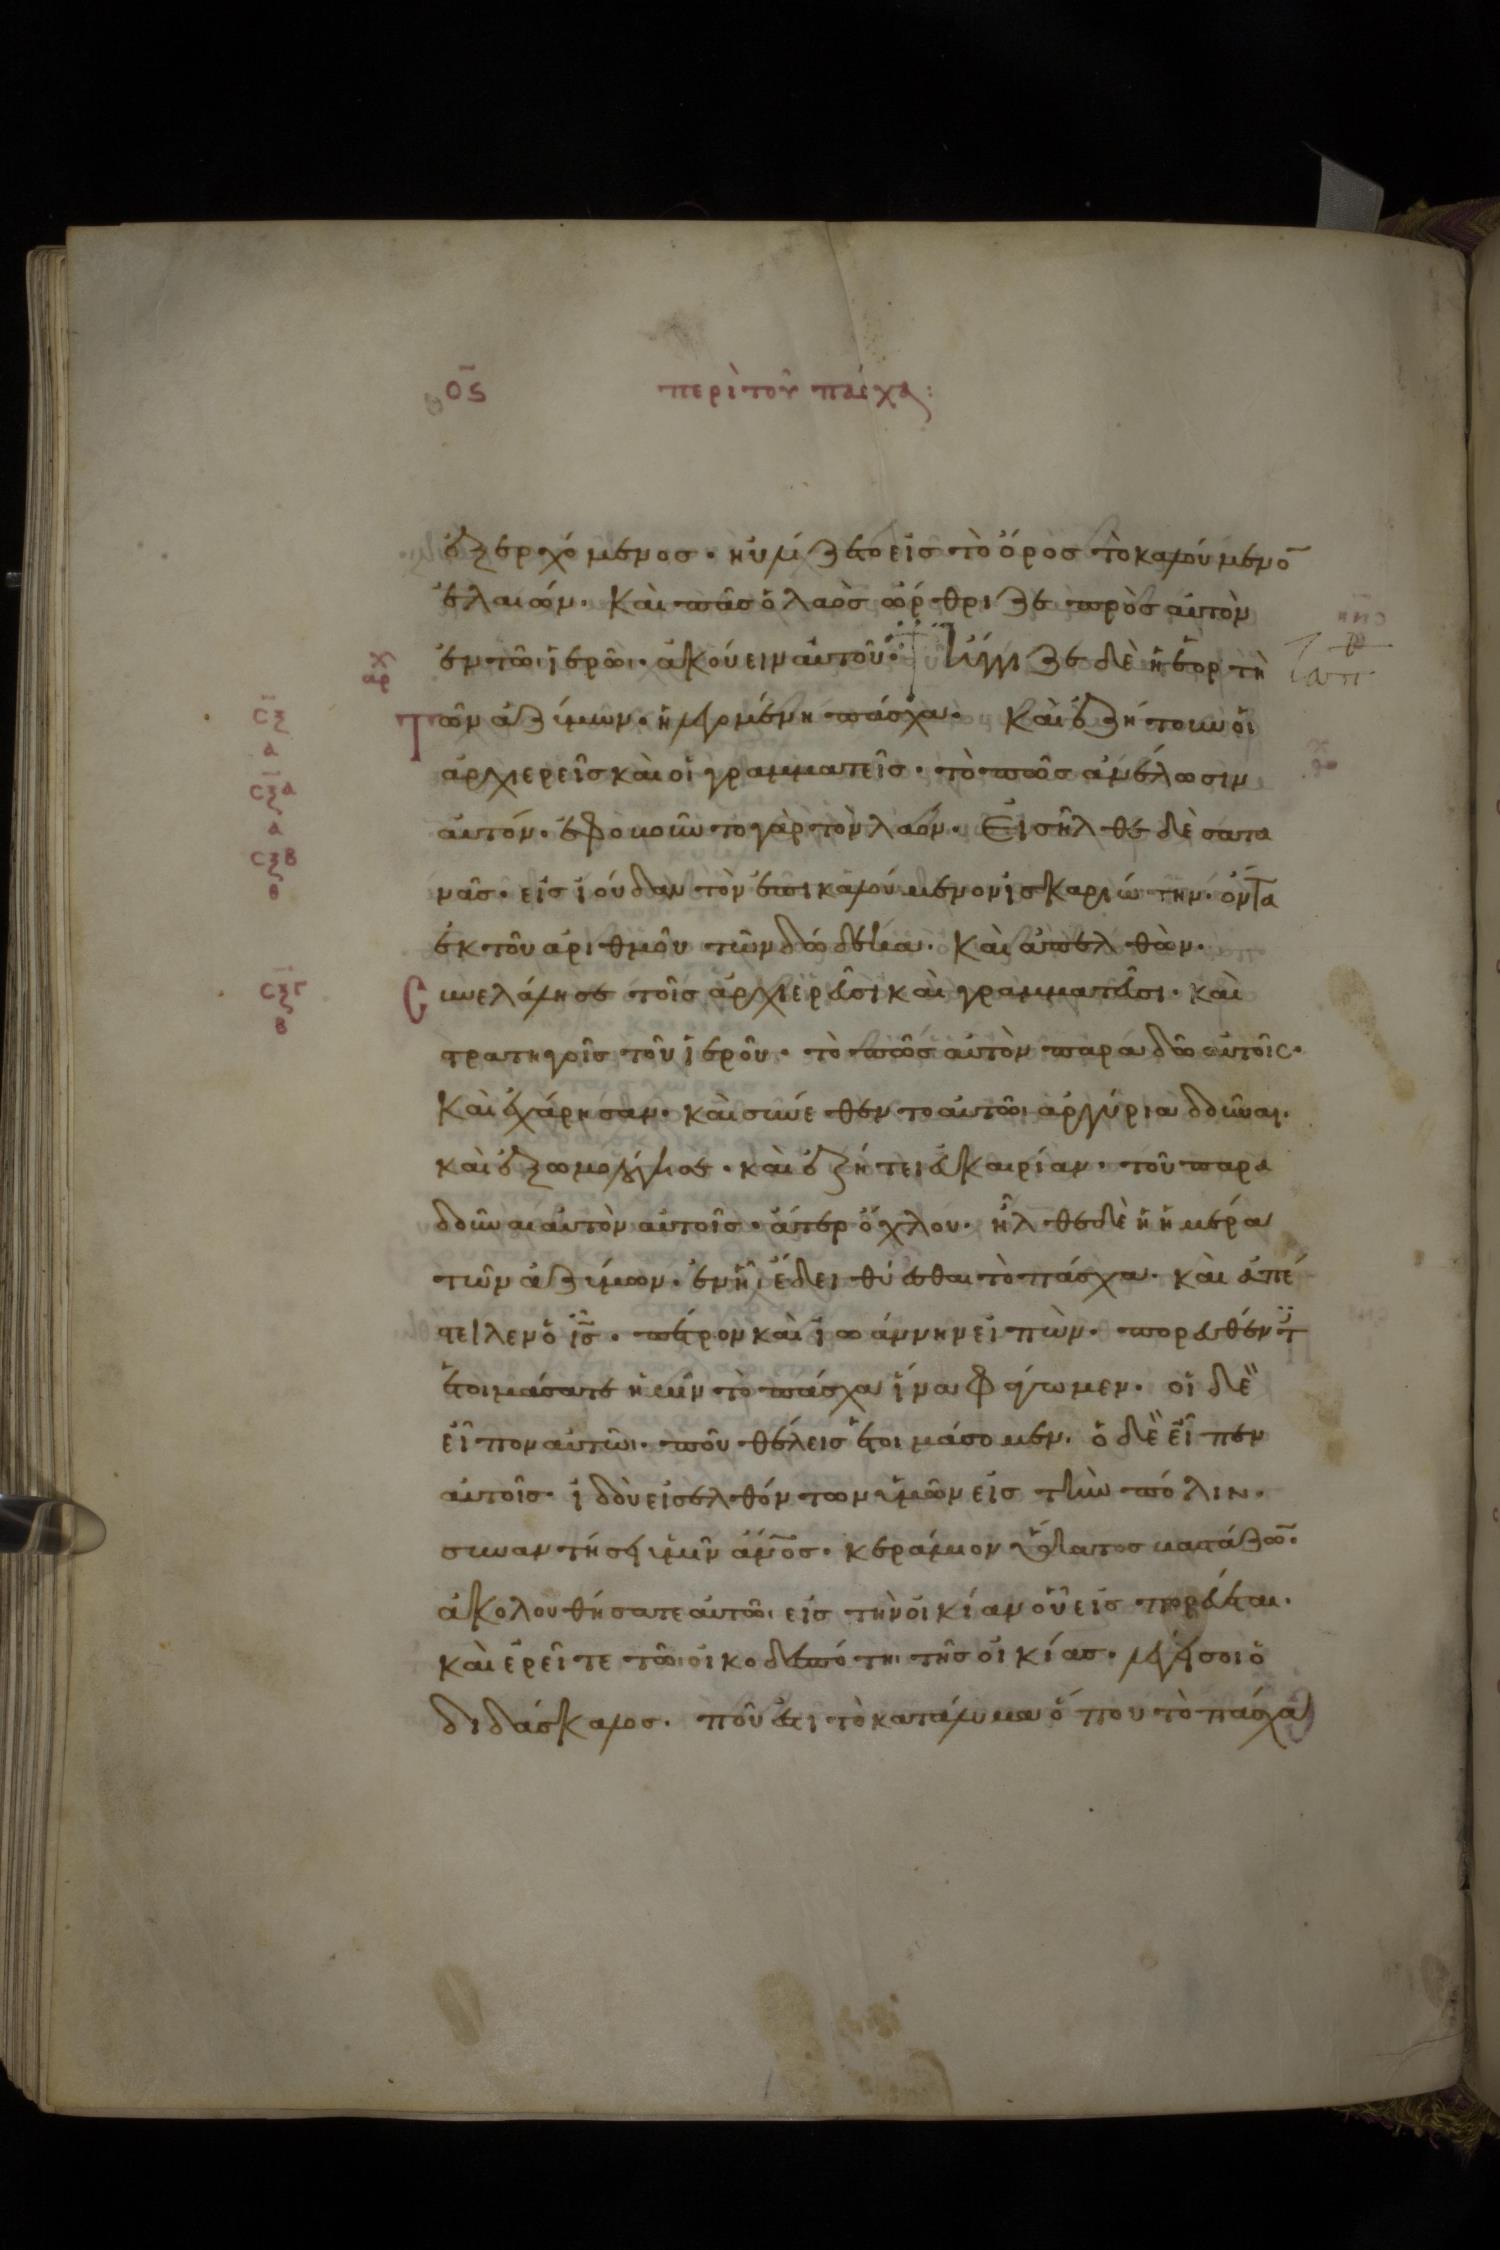 ος περὶ τοῦ πάσχα:
ἐξερχόμενοσ· ηὐλίζετο εἰσ τὸ ὄροσ τὸ καλούμενο̄
ἐλαιῶν· Καὶ πᾶσ ὁ λαὸσ ὤρθριζε πρὸσ αὐτὸν
ἐν τῶι ἱερῶι· ἀκούειν αὐτοῦ· ἤγγιζε δὲ ἡ ἑορτὴ
χ
αρ
Τῶν ἀζύμων· ἡ λεγομένη πάσχα· Καὶ ἐζήτουν οἱ
ἀρχιερεῖσ καὶ οἱ γραμματεῖσ· τὸ πῶσ ἀνέλωσιν
αὐτόν· ἐφοβοῦντο γὰρ τὸν λαόν· Εἰσῆλθε δὲ σατα
νᾶσ· εἰσ ἰούδαν τὸν ἐπικαλούμενον ἰσκαριώτην· ὄντα
ἐκ τοῦ ἀριθμοῦ τῶν δώδεκα· Καὶ ἀπελθὼν·
Συνελάλησε τοῖσ ἀρχιερεῦσι καὶ γραμματεῦσι· καὶ
στρατηγοῖσ τοῦ ἱεροῦ· τὸ πῶσ αὐτὸν παραδῶ αὐτοῖς·
Καὶ ἐχάρησαν· καὶ συνέθεντο αὐτῶι ἀργύρια δοῦναι·
καὶ ἐξωμολόγησε· καὶ ἐζήτει εὐκαιρίαν· τοῦ παρα
δοῦναι αὐτὸν αὐτοῖσ· ἄτερ ὄχλου· ἦλθε δὲ ἡ ἡμέρα
τῶν ἀζύμων· ἐν ἧι ἔδει θύεσθαι τὸ πάσχα· καὶ ἀπέ
στειλεν ὁ ι̅σ̅· πέτρον καὶ ἰωάννην εἰπὼν· πορευθέντ
ἑτοιμάσατε ἡμῖν τὸ πάσχα ἵνα φάγωμεν· οἱ δὲ
εἶπον αὐτῶι· ποῦ θέλεισ ἑτοιμάσομεν· ὁ δὲ εἶπεν
αὐτοῖσ· ἰδοὺ εἰσελθόντων ὑμῶν εἰσ τὴν πόλιν·
συναντήσει ὑμῖν ἄν̅ο̅σ· κεράμιον ὕδατοσ βαστάζω̄·
ἀκολουθήσατε αὐτῶι εἰσ τὴν οἰκίαν οὗ εἰσπορεύεται·
καὶ ἐρεῖτε τῶι οἰκοδεσπότηι τῆσ οἰκίασ· λέγει σοι ὁ
διδάσκαλοσ· ποῦ ἐστι τὸ κατάλυμα ὅπου τὸ πάσχα